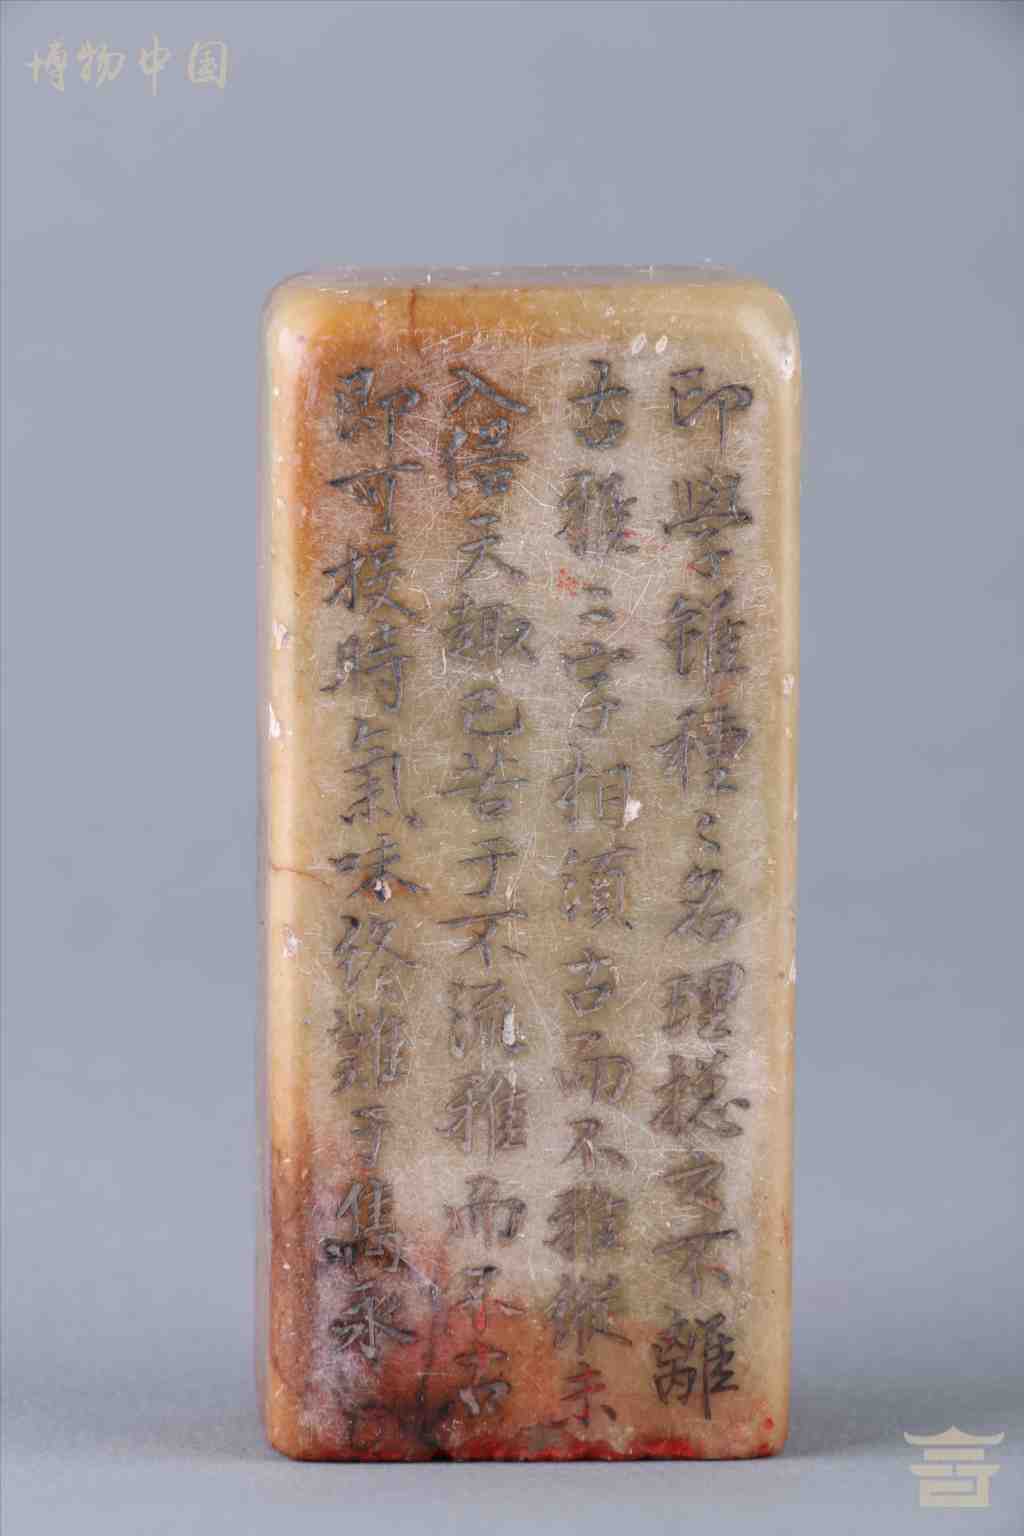 博物中国
印學雖種〻名理總之不離
古雅二字相須古而不雅縱未
入俗天趣已苦于不流雅而不古
即可投時氣味終難于雋永